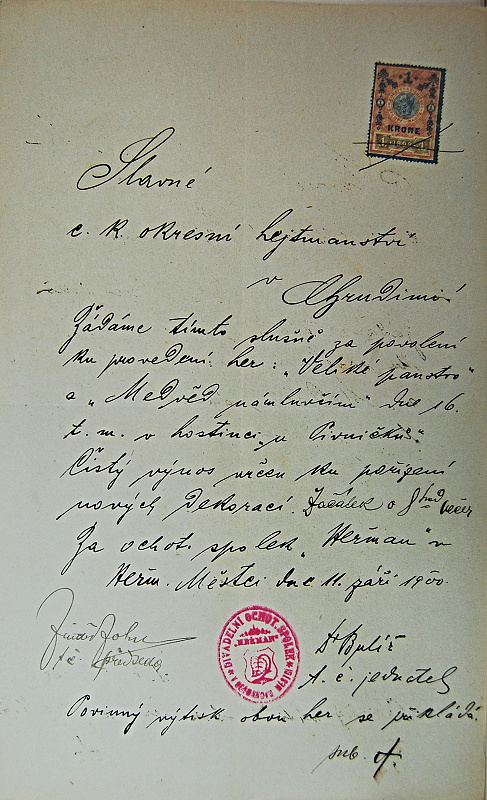 1
KRONE
Slavné
c. k. okresní hejtmanství
v Chrudimi
Žádáme tímto slušně za povolení
ku provedení her: „Veliké panstvo“
a „Medvěd námluvčím“ dne 16.
t. m. v hostinci „u Pivničků“.
Čistý výnos určen ku pořízení
nových dekorací. Začátek o 8 hod večer
Za ochot. spolek „Heřman“ v
Heřm. Městci dne 11. září 1900.
t. č. předseda
DIVADELNÍ OCHOT. SPOLEK
"HEŘMAN"
Dr Bulíř
t. č. jednatel
Povinný výtisk obou her se přikládá.